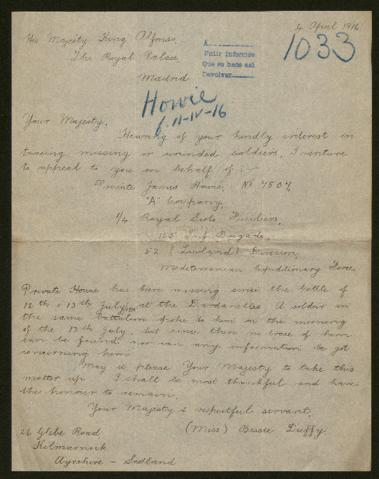 4 April 1916
His Majesty King Alfonso,
The Royal Palace,
Madrid
A
Pedir informes
Que se hace así
Devolver
1033
Howie
f. 11-IV-16
Your Majesty,
Hearing of your kindly interest in
tracing missing or wounded soldiers, I venture
to appeal to you on behalf of :-
Private James Howie, No 7507
"A" Company,
1/4 Royal Scots Fusiliers,
155 Inf Brigade,
52 (Lowland) Division,
Mediterranean Expeditionary Force.
Private Howie has been missing since the battle of
12th & 13th July 1915 at the Dardanelles. A soldier in
the same Battalion spoke to him in the morning
of the 13th July but since then no trace of him
can be found nor can any information be got
concerning him.
May it please Your Majesty to take this
matter up I shall be most thankful and have
the honour to remain,
Your Majesty's respectful servant,
(Miss) Bessie Duffy.
26 Glebe Road,
Kilmarnock
Ayrshire - Scotland